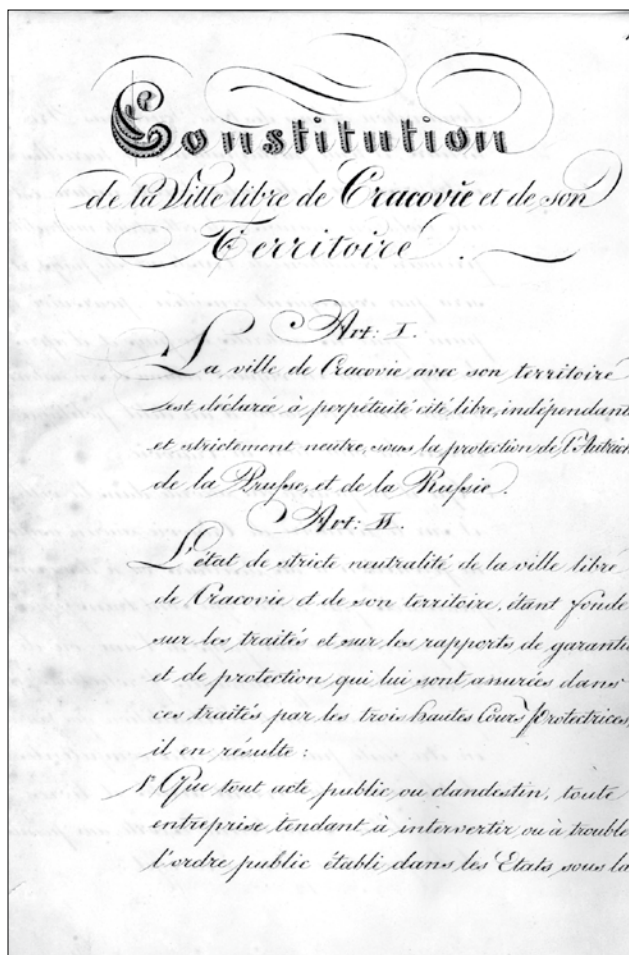 Constitution
de la Ville libre de Cracovie et de son
Territoire.
Art: I.
La ville de Cracovie avec son territoire
est déclarée à perpétuité cité libre, indépendant
et strictement neutre, sous la protection de l'Autrich
de la Prusse, et de la Russie.
Art: II.
L'état de stricte neutralité de la ville libre
de Cracovie et de son territoire, étant fondé
sur les traités et sur les rapports de garantie
et de protection qui lui sont assurées dans
ces traités par les trois hautes Cours protectrices,
il en résulte:
1° Que tout acte public ou clandestin, toute
entreprise tendant à intervertir ou à trouble
l'ordre public établi dans les Etats sous la